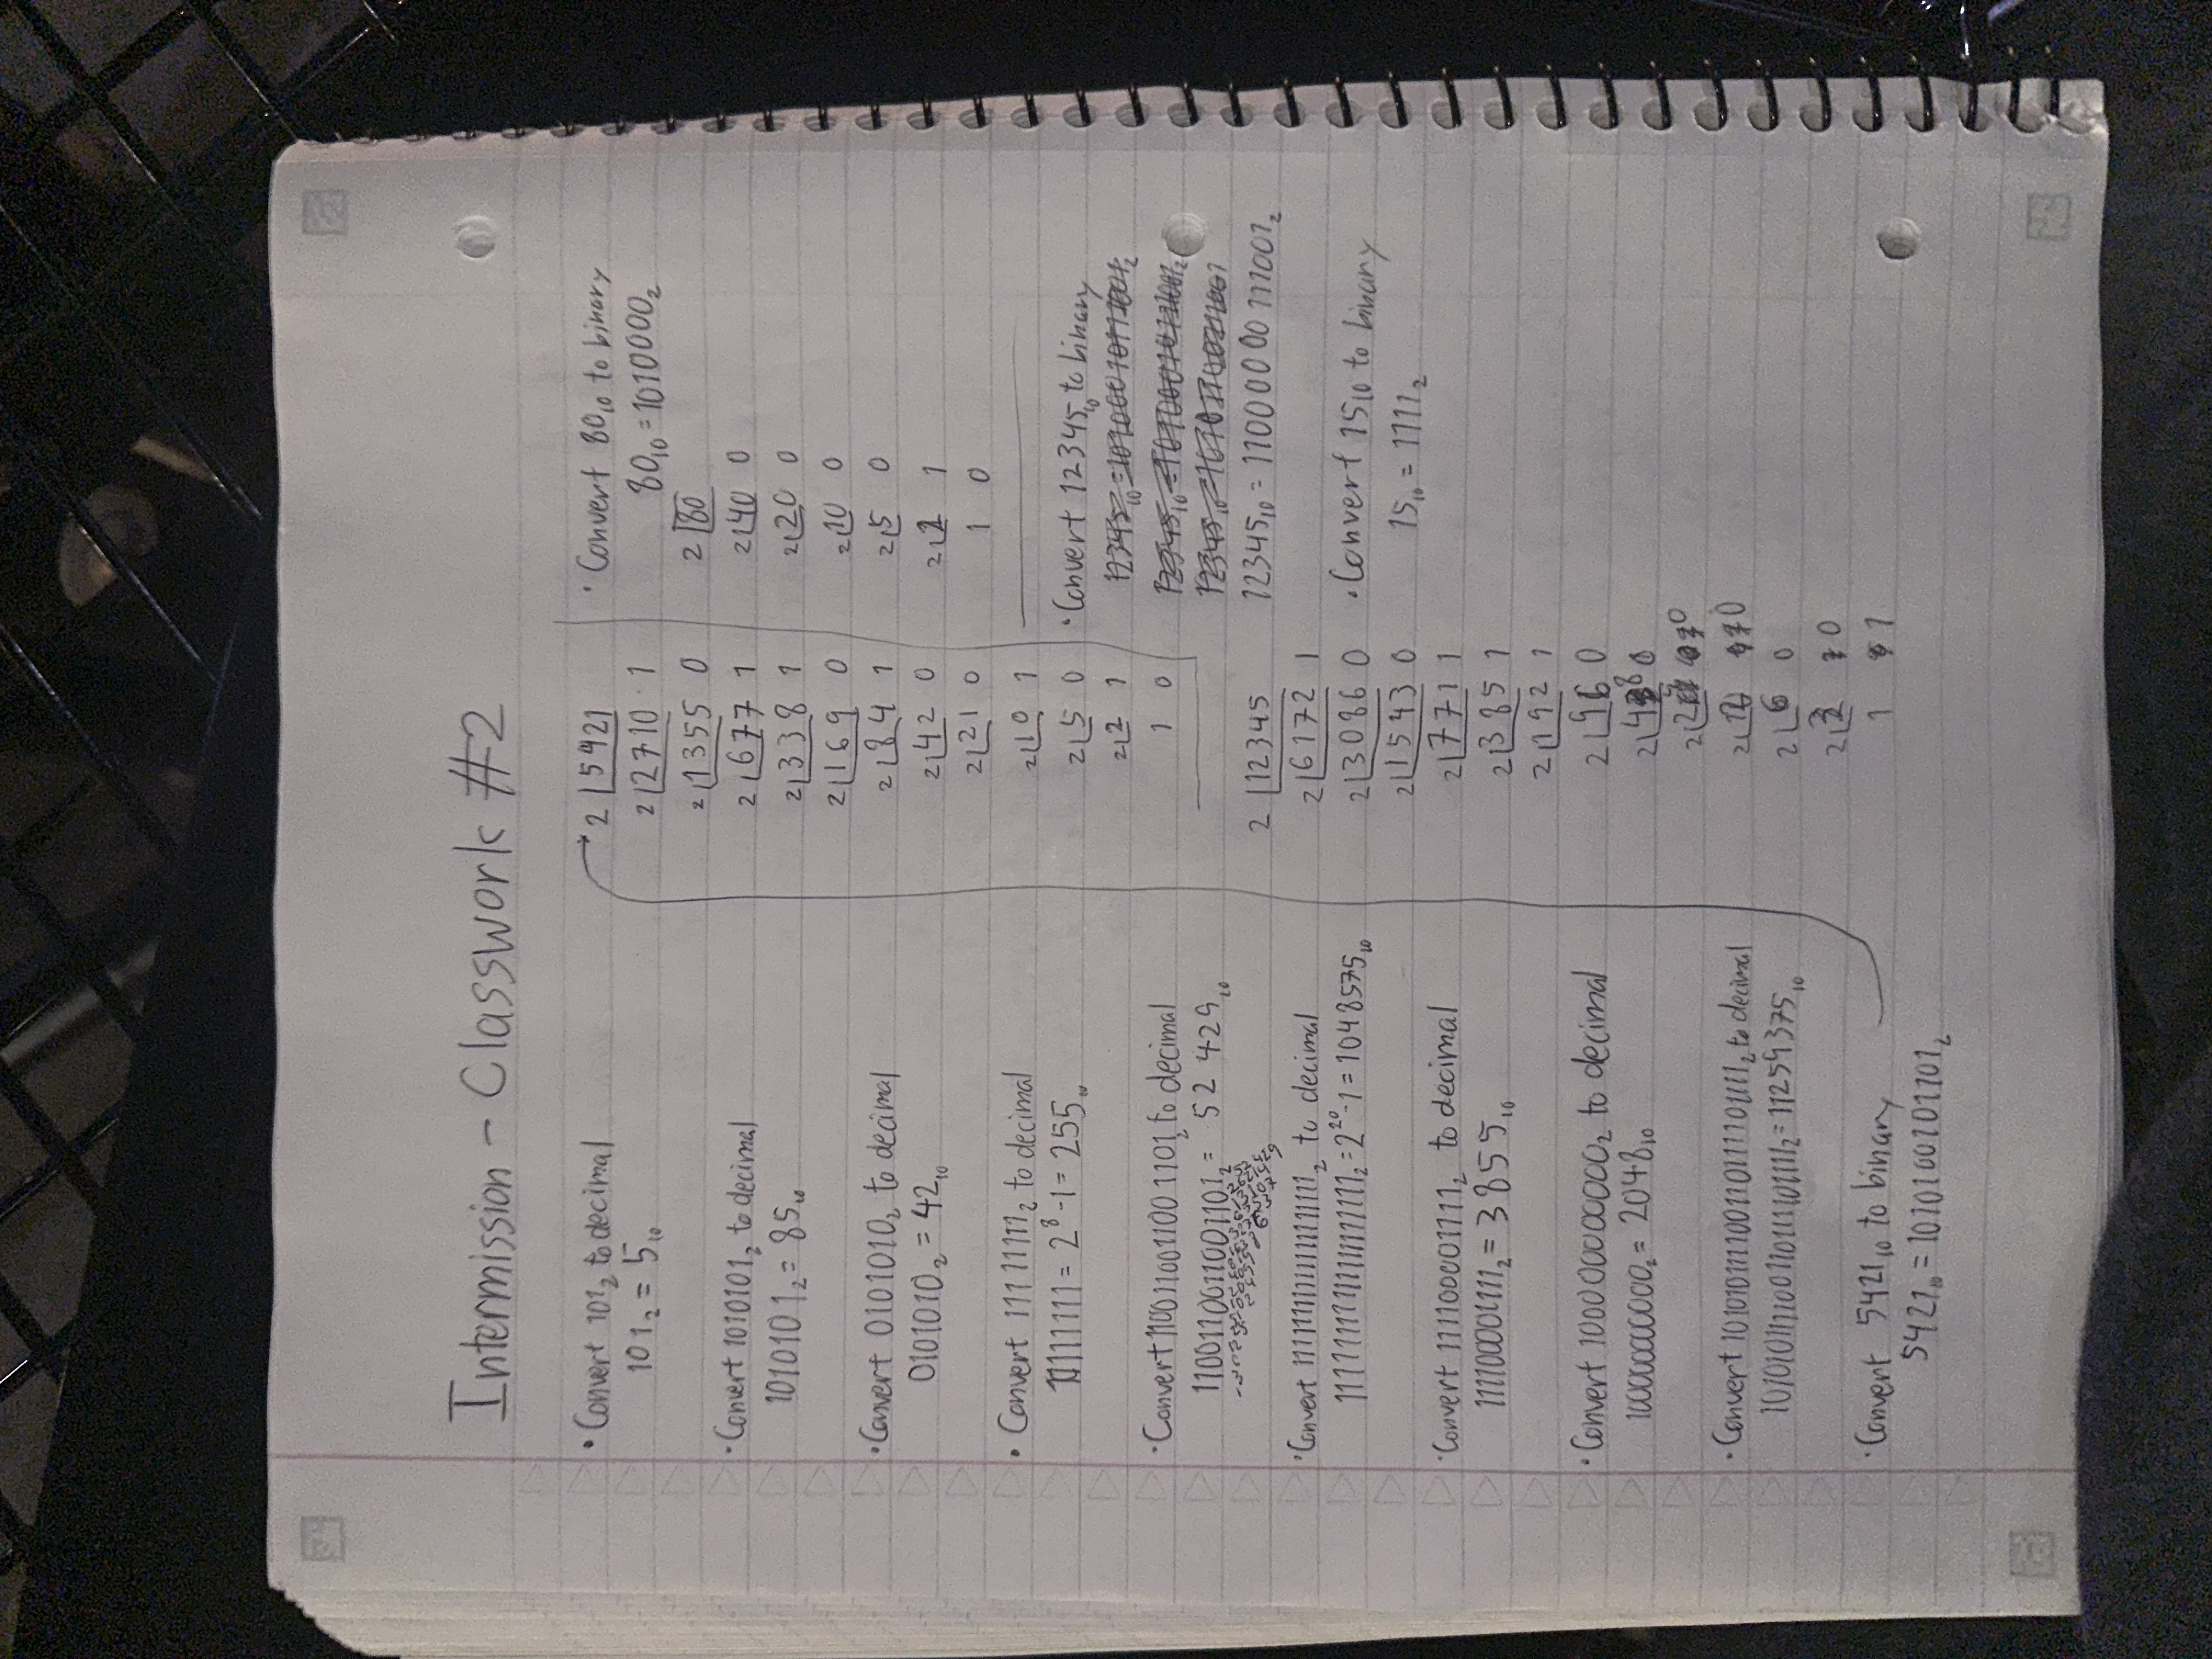 Intermission - Classwork #2
• Convert 101₂ to decimal
101₂ = 5₁₀
• Convert 1010101₂ to decimal
1010101₂ = 85₁₀
• Convert 0101010₂ to decimal
0101010₂ = 42₁₀
• Convert 11111111₂ to decimal
11111111 = 2⁸-1 = 255₁₀
• Convert 1100110011001101₂ to decimal
1100110011001101₂ = 52 429₁₀
• Convert 11111111111111111111₂ to decimal
11111111111111111111₂ = 2²⁰-1 = 1048575₁₀
• Convert 111100001111₂ to decimal
111100001111₂ = 3855₁₀
• Convert 100000000000₂ to decimal
100000000000₂ = 2048₁₀
• Convert 101010111100110111101111₂ to decimal
101010111100110111101111₂ = 11259375₁₀
• Convert 5421₁₀ to binary
5421₁₀ = 1010100101101₂
2 5421
2 2710 1
2 1355 0
2 677 1
2 338 1
2 169 0
2 84 1
2 42 0
2 21 0
2 10 1
2 5 0
2 2 1
1 0
2 12345
2 6172 1
2 3086 0
2 1543 0
2 771 1
2 385 1
2 192 1
2 96 0
2 48 0
2 24 0
2 12 0
2 6 0
2 3 0
1 1
• Convert 80₁₀ to binary
80₁₀ = 1010000₂
2 80
2 40 0
2 20 0
2 10 0
2 5 0
2 2 1
1 0
• Convert 12345₁₀ to binary
12345₁₀ = 11000000111001₂
• Convert 15₁₀ to binary
15₁₀ = 1111₂